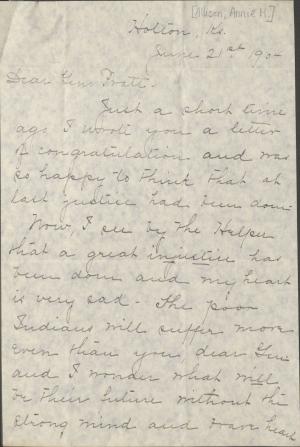 [Allison, Annie H.]
Holton, Ks.
June 21st 190-
Dear Gen Pratt.
Just a short time
ago I wrote you a letter
of congratulation and was
so happy to think that at
last justice had been done.
Now, I see by the Helper
that a great injustice has
been done and my heart
is very sad - The poor
Indians will suffer more
even than you, dear Gen
and I wonder what will
be their future without the
strong mind and brave heart